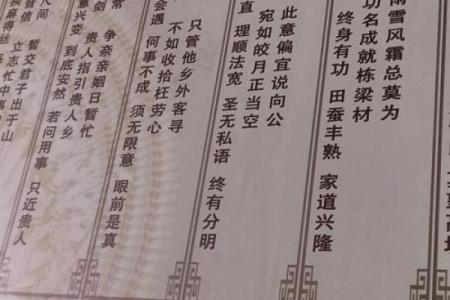 雨雪风霜总莫为
功名成就栋梁材
终身有功 田蚕丰熟 家道兴隆
此意偏宜说向公
宛如皎月正当空
直 理顺法宽 圣无私语 终有分明
只管他乡外客寻
不如收拾枉劳心
会遇 何事不成 须无限意 眼前是真
争奈亲姻日暂忙
剑 贵人指引贵人乡
意兴变 到底安然 若问用事 只近贵人
尺间 暂交君子出于山
立志忙中